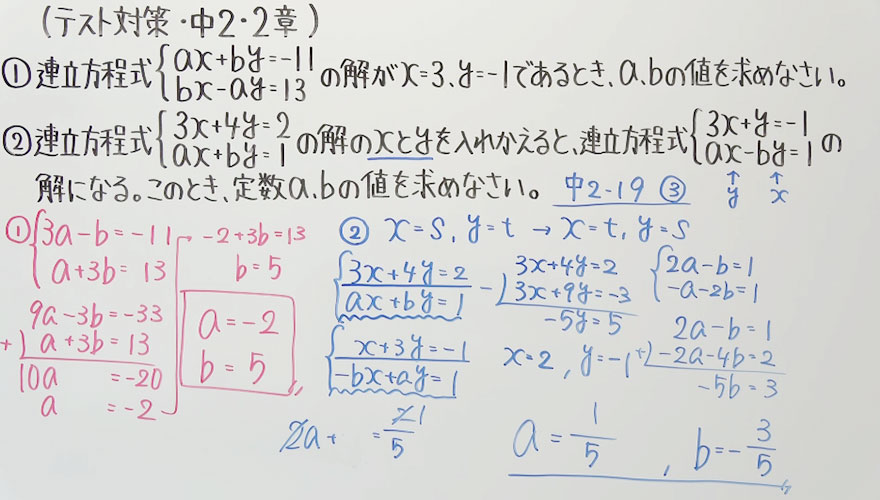 (テスト対策・中2・2章)
①連立方程式{ax+by=-11 bx-ay=13の解がx=3、y=-1であるとき、a、bの値を求めなさい。
②連立方程式{3x+4y=2 ax+by=1の解のxとyを入れかえると、連立方程式{3x+y=-1 ax-by=1の
解になる。このとき、定数a、bの値を求めなさい。 中2-19 ③ ↑y ↑x
①{3a-b=-11
a+3b=13
9a-3b=-33
+) a+3b=13
10a =-20
a =-2
-2+3b=13
b=5
a=-2
b=5
② x=s, y=t → x=t, y=s
{3x+4y=2
ax+by=1
{x+3y=-1
-bx+ay=1
3x+4y=2
-) 3x+9y=-3
-5y=5
x=2, y=-1
{2a-b=1
-a-2b=1
2a-b=1
+) -2a-4b=2
-5b=3
2a+ =21/5
a=1/5, b=-3/5